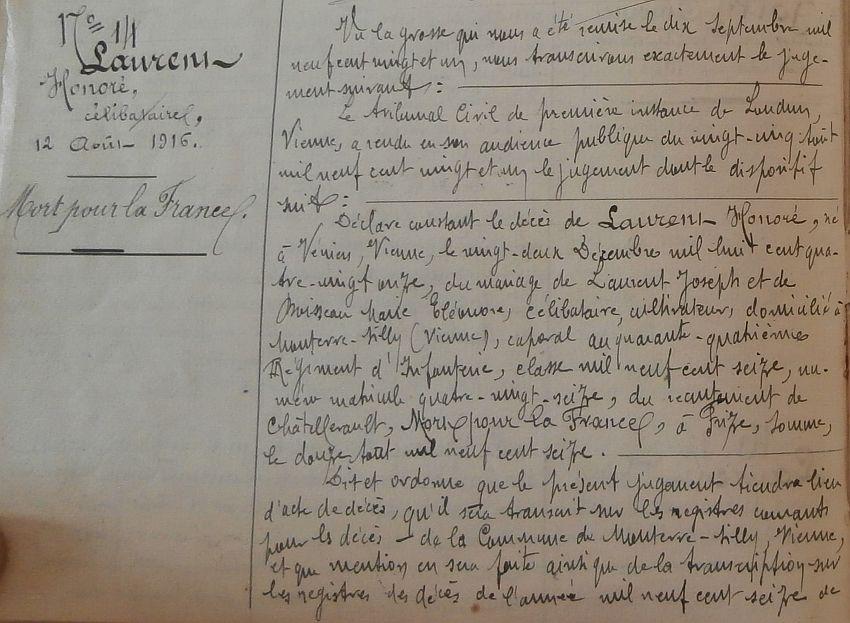 Nº 14
Laurent
Honoré,
célibataire,
12 Août 1916.
Mort pour la France.
Vu la grosse qui nous a été remise le dix septembre mil
neuf cent vingt et un, nous transcrivons exactement le juge-
ment suivant :
Le Tribunal Civil de première instance de Loudun,
Vienne, a rendu en son audience publique du vingt-cinq août
mil neuf cent vingt et un le jugement dont le dispositif
suit :
Déclare constant le décès de Laurent Honoré, né
à Vénien, Vienne, le vingt-deux Décembre mil huit cent qua-
tre-vingt onze, du mariage de Laurent Joseph et de
Moisseau Marie Eléonore, célibataire, cultivateur, domicilié à
Monterre-Silly (Vienne), caporal au quarante-quatrième
Régiment d'Infanterie, classe mil neuf cent seize, nu-
méro matricule quatre-vingt-seize, du recrutement de
Châtellerault, Mort pour la France, à Frize, Somme,
le douze août mil neuf cent seize.
Dit et ordonne que le présent jugement tiendra lieu
d'acte de décès, qu'il sera transcrit sur les registres courants
pour les décès de la Commune de Monterre-Silly, Vienne,
et que mention en sera faite ainsi que de la transcription sur
les registres des décès de l'année mil neuf cent seize de